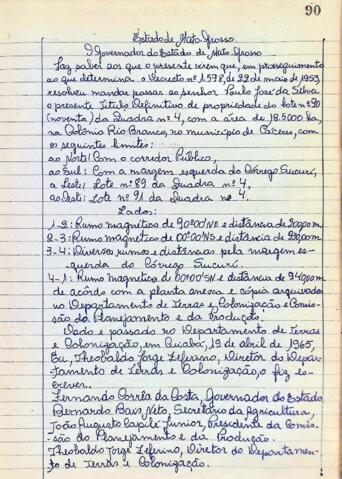 90
Estado de Mato Grosso.
O Governador do Estado de Mato Grosso
Faz saber aos que o presente virem que, em prosseguimento
ao que determina o Decreto nº 1.598, de 22 de maio de 1953,
resolveu mandar passar ao senhor Paulo José da Silva
o presente Titulo Definitivo de propriedade do lote nº 90
(noventa) da Quadra nº 4, com a área de 18.5000 ha,
na Colônia Rio Branco, no municipio de Cáceres, com
os seguintes limites:
ao Norte: Com o corredor Público,
ao Sul: Com a margem esquerda do Córrego Sucuri,
a Leste: Lote nº 89 da Quadra nº 4,
ao Oeste: Lote nº 91 da Quadra nº 4.
Lados:
1-2: Rumo magnético de 90º00'NE e distância de
2-3: Rumo magnético de 00º00' e distância de
3-4: Diversos rumos e distâncias pela margem es-
querda do Córrego Sucuri.
4-1: Rumo magnético de 00º00' e distância de
de acôrdo com a planta anexa e cópia arquivada
no Departamento de Terras e Colonização e Comis-
são do Planejamento e da Produção.
Dado e passado no Departamento de Terras
e Colonização, em Cuiabá, 19 de abril de 1965,
Eu, Theobaldo Jorge Zeferino, Diretor do Depar-
tamento de Terras e Colonização, o fiz es-
crever.
Fernando Corrêa da Costa, Governador do Estado,
Bernardo Bais Neto, Secretário da Agricultura,
João Augusto Capilé Junior, Presidente da Comis-
são do Planejamento e da Produção.
Theobaldo Jorge Zeferino, Diretor do Departamen-
to de Terras e Colonização.